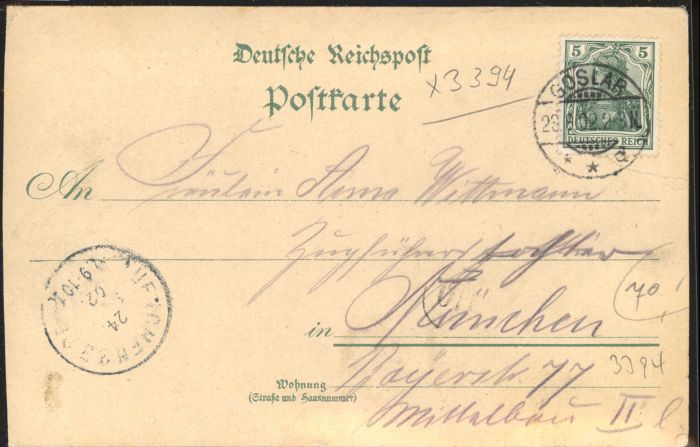 Deutsche Reichspost
Postkarte
x3394
5 5
GOSLAR
DEUTSCHES REICH
d
An Fräulein Anna Wittmann
Zugführers tochter
70
in München
3394
Bayerstr. 77
Wohnung
(Straße und Hausnummer)
Mittelbau II l.
MUENCHEN
24
02
9-10